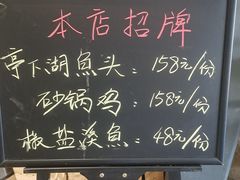 本店招牌
亭下湖魚头：158元/份
砂锅鸡：158元/份
椒盐溪魚：48元/份